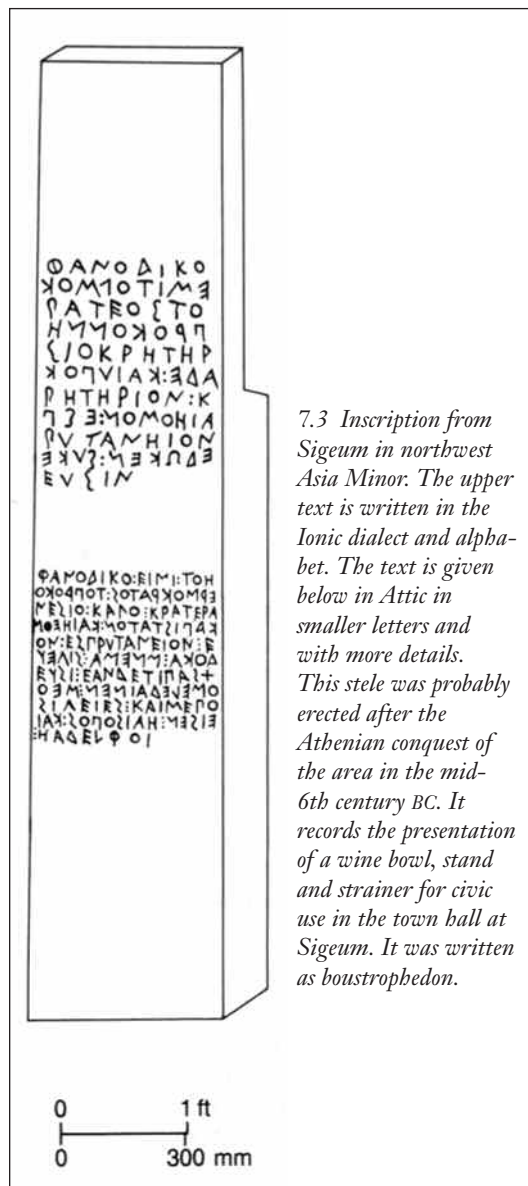 ΦΑΝΟΔΙΚΟ
ΕΜΙΤΟΜΜΟΚ
ΡΑΤΕΟΣΤΟ
ΠΡΟΚΟΝΝΗ
ΣΙΟΚΡΗΤΗΡ
ΑΔΕ:ΚΑΙΥΠΟΚ
ΡΗΤΗΡΙΟΝ:Κ
ΑΙΗΟΜΟΜ:ΕΣΠ
ΡΥΤΑΝΗΙΟΝ
ΕΔΩΚΕΜ:ΣΥΚΕ
ΕΥΣΙΝ
ΦΑΝΟΔΙΚΟ:ΕΙΜΙ:ΤΟΗ
ΕΡΜΟΚΡΑΤΟΣ:ΤΟΠΡΟΚΟ
ΝΕΣΙΟ:ΚΑΓΟ:ΚΡΑΤΕΡΑ
ΚΑΠΙΣΤΑΤΟΝ:ΚΑΙΗΕΘΜ
ΟΝ:ΕΣΠΡΥΤΑΝΕΙΟΝ:Ε
ΔΟΚΑ:ΜΝΕΜΑ:ΣΙΓΕΥ
ΕΥΣΙ:ΕΑΝΔΕΤΙΠΑΣ+
Ο:ΜΕΛΕΔΑΙΝΕΝ:ΜΕΟ
ΣΙΓΕΙΕΣ:ΚΑΙΜΕΠΟ
ΕΙΣΕΝ:ΗΑΙΣΟΠΟΣ:ΚΑΙ
:ΗΑΔΕΛΦΟΙ
0 1 ft
0 300 mm
7.3 Inscription from
Sigeum in northwest
Asia Minor. The upper
text is written in the
Ionic dialect and alpha-
bet. The text is given
below in Attic in
smaller letters and
with more details.
This stele was probably
erected after the
Athenian conquest of
the area in the mid-
6th century BC. It
records the presentation
of a wine bowl, stand
and strainer for civic
use in the town hall at
Sigeum. It was written
as boustrophedon.